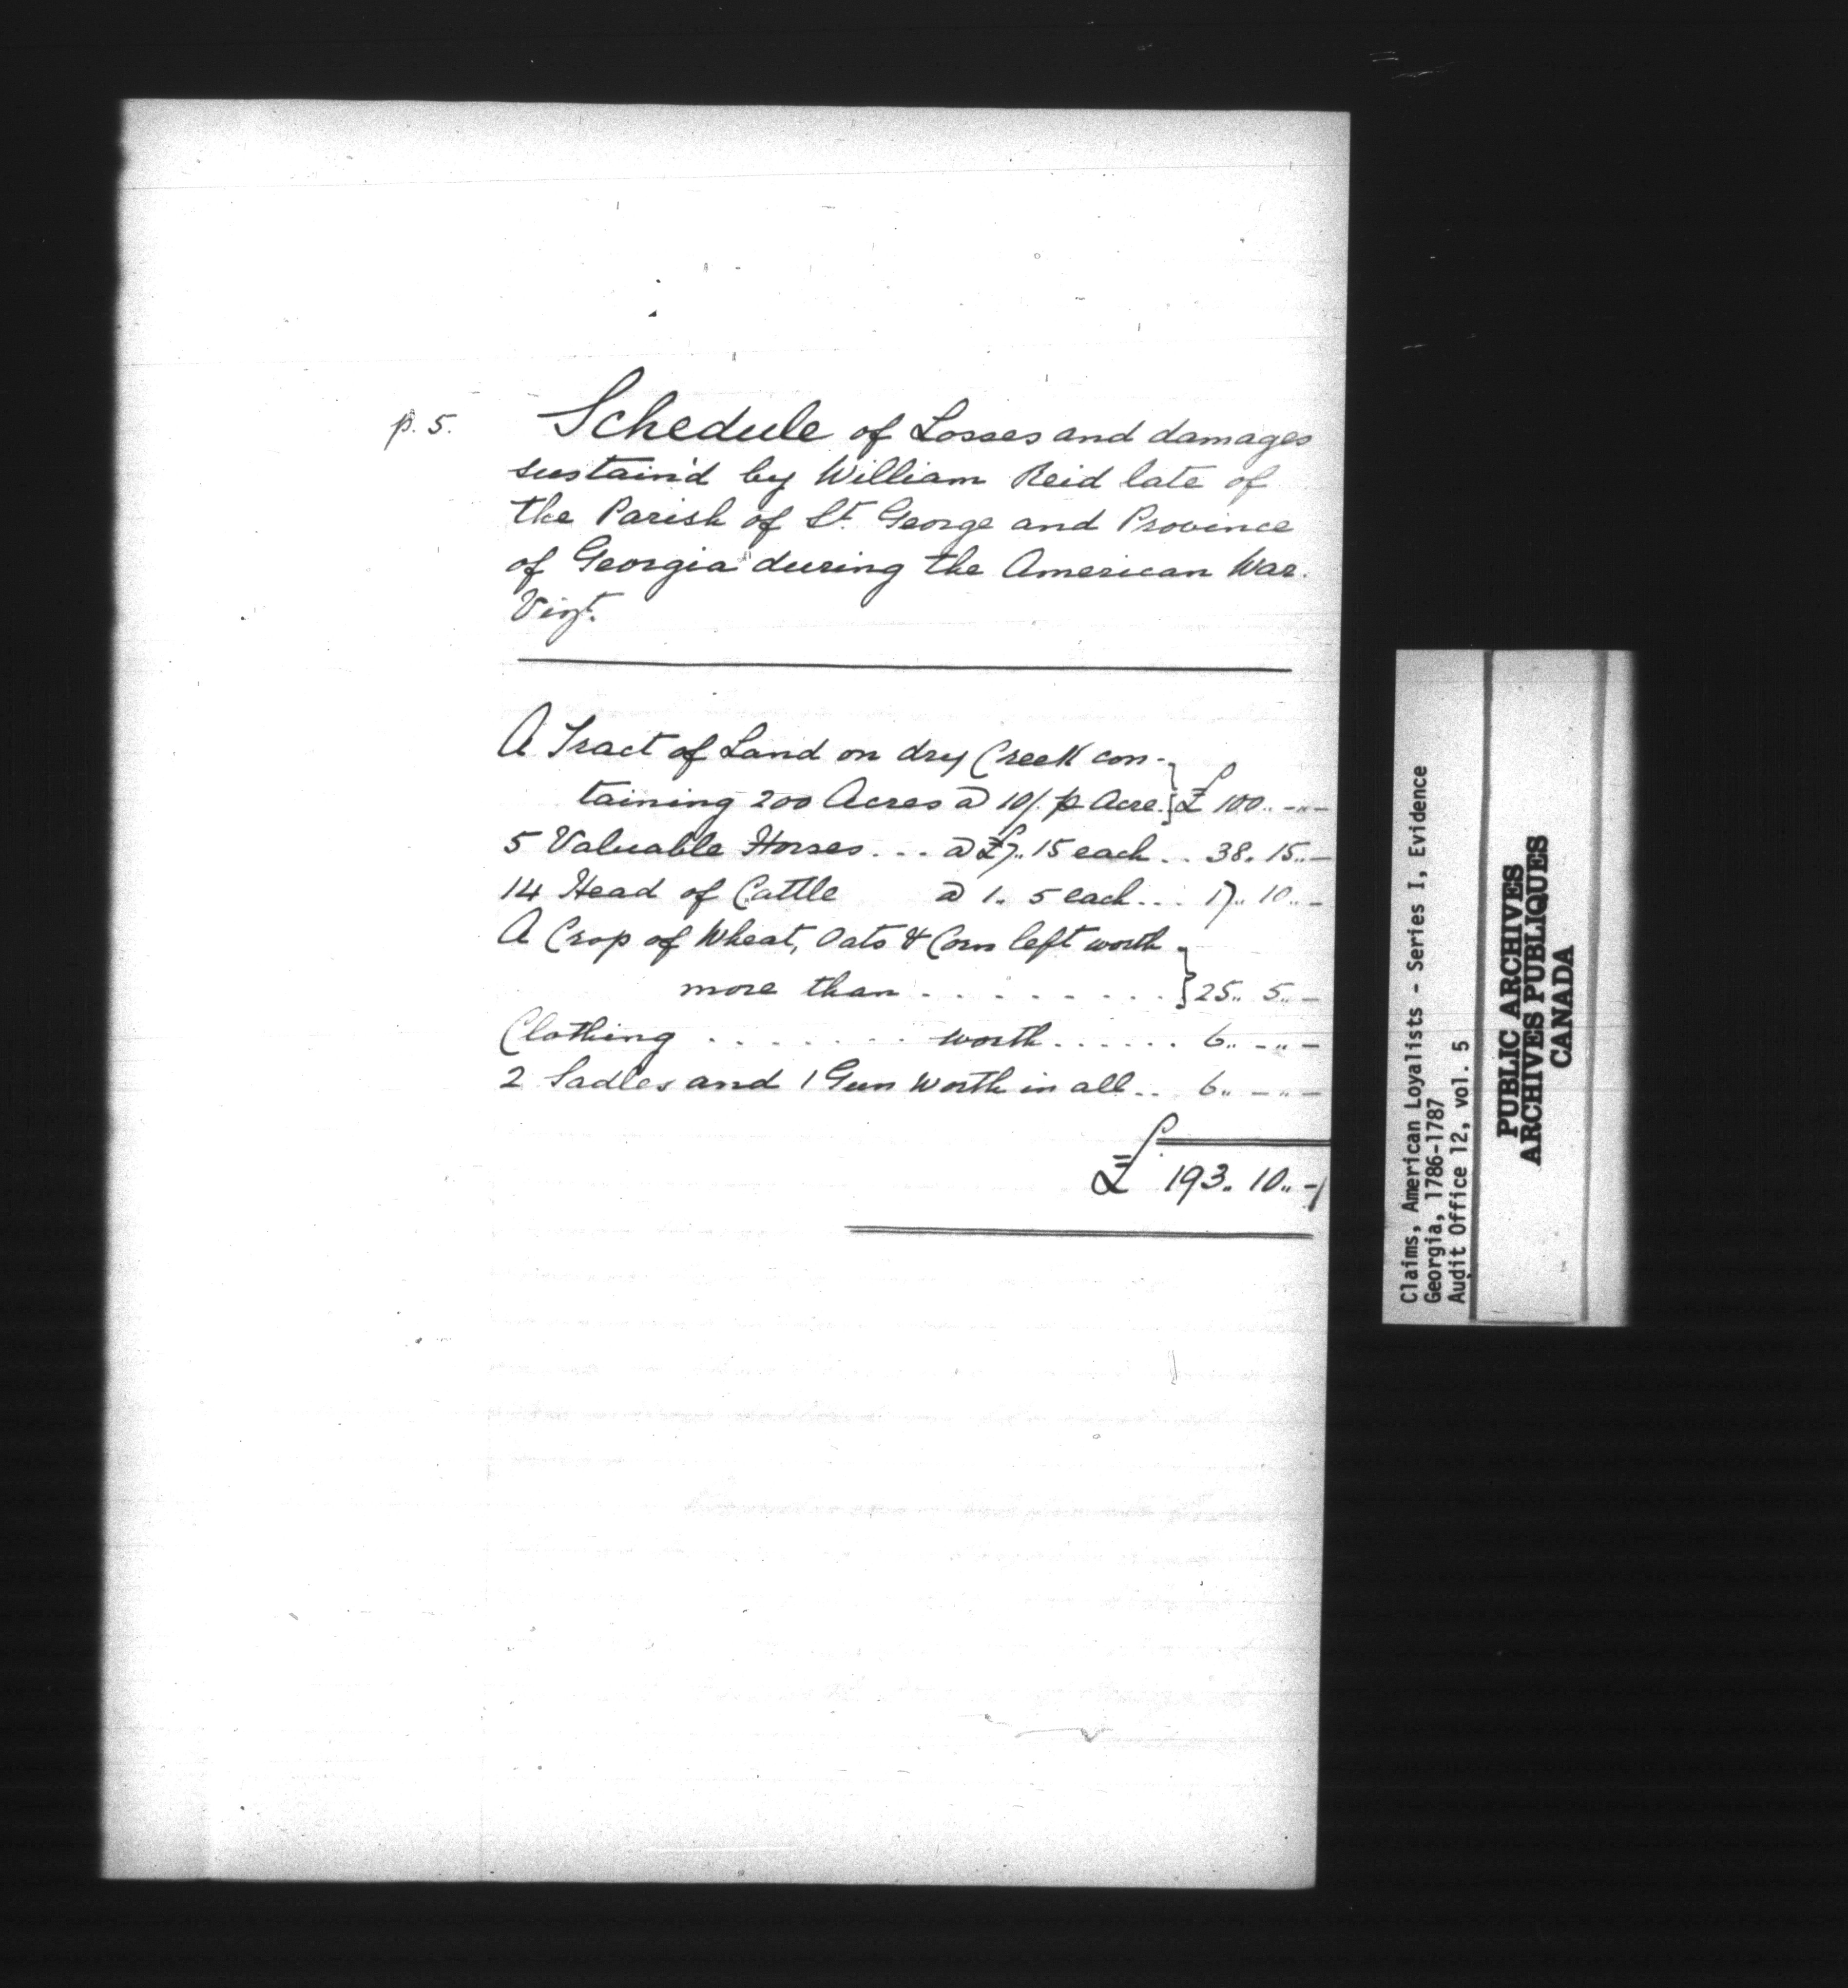 p. 5. Schedule of Losses and damages
sustain'd by William Reid late of
the Parish of St. George and Province
of Georgia during the American War.
Vizt.
A Tract of Land on dry Creek con-
taining 200 Acres @ 10/. p Acre. } £ 100.. -..-
5 Valuable Horses... @ £7.. 15 each.. 38. 15..-
14 Head of Cattle @ 1. 5 each... 17.. 10..-
A Crop of Wheat, Oats & Corn left worth
more than . . . . . . . . . } 25.. 5..-
Clothing . . . . . . . . worth...... 6.. -..-
2 Sadles and 1 Gun Worth in all.. 6.. -..-
£ 193. 10.. -/
Claims, American Loyalists - Series I, Evidence
Georgia, 1786-1787
Audit Office 12, vol. 5
PUBLIC ARCHIVES
ARCHIVES PUBLIQUES
CANADA